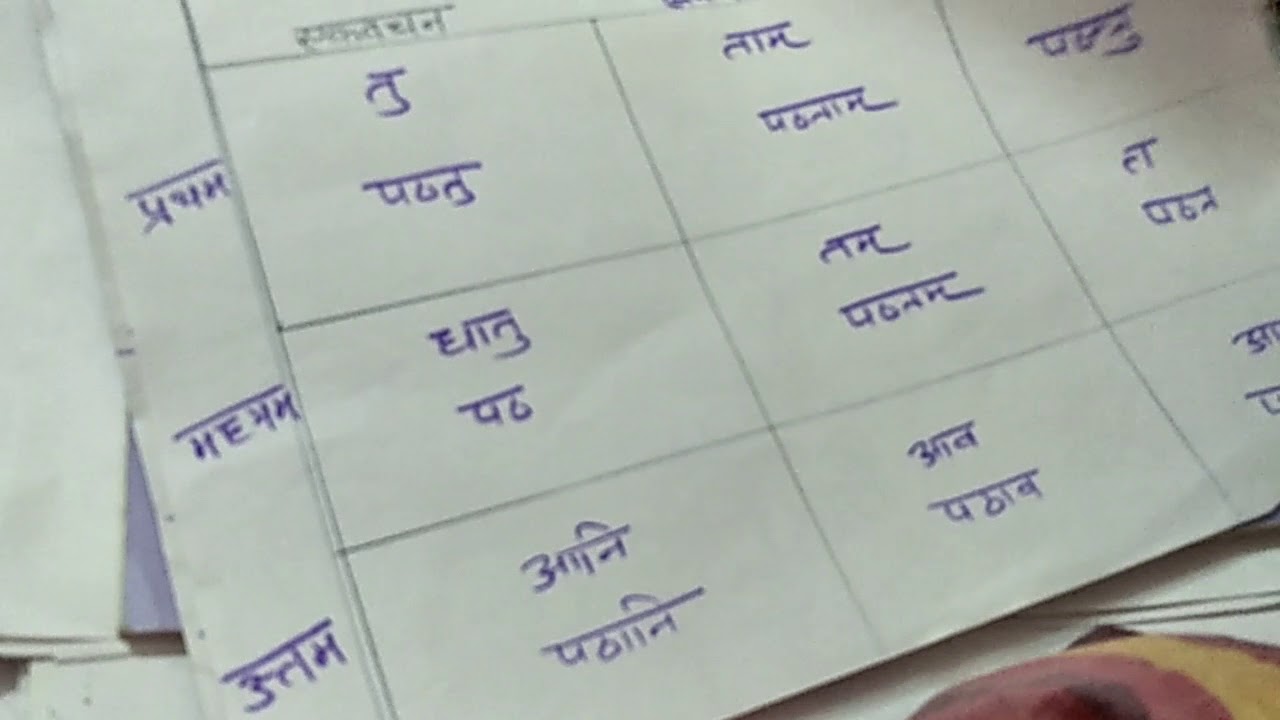 एकवचन
प्रथम
तु
पठतु
ताम्
पठताम्
पठन्तु
मध्यम
धातु
पठ
तम्
पठतम्
त
पठत
उत्तम
आनि
पठानि
आव
पठाव